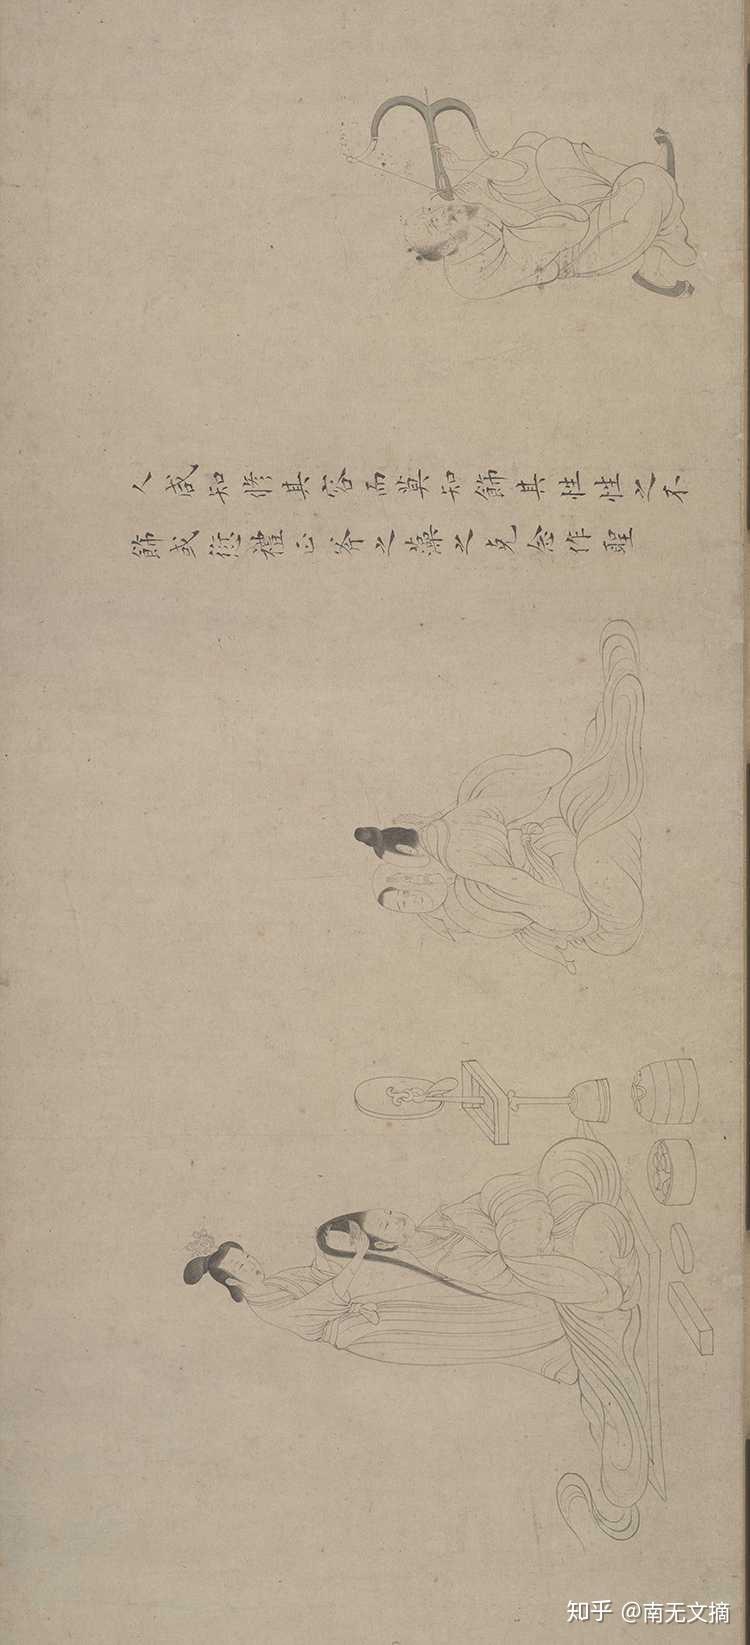 人咸知修其容而莫知飾其性性之不
飾或愆禮正斧之藻之克念作聖
知乎 @南无文摘